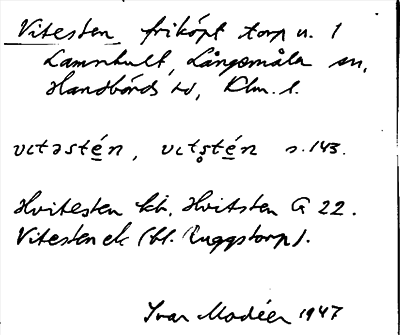 Vitesten friköpt torp u. 1
Lammhult, Långemåla sn,
Handbörds hd, Klm. l.
vitəstén, vitstén s. 143.
Hvitesten kb, Hvitsten G 22.
Vitesten ek (bl. Ryggstorp).
Ivar Modéer 1947